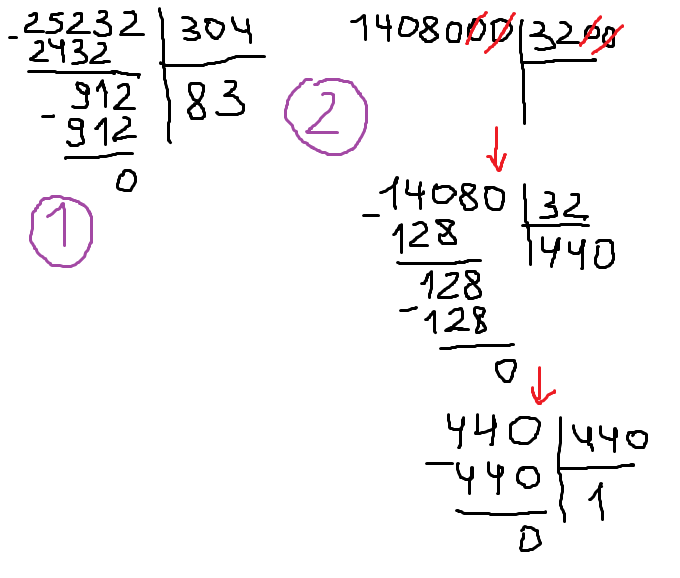 -25232 | 304
2432
912 | 83
-912
0
1
1408000 | 3200
2
-14080 | 32
128 | 440
128
-128
0
440 | 440
-440 | 1
0